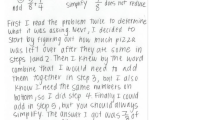 add 3/8 + 1/4 simplify does not move
First I read the problem twice to determine
what it was asking. Next, I decided to
start by figuring out how much pizza
was left over after they ate some in
steps 1 and 2. Then I knew by the word
combine that I would need to add
them together in step 3, but I also
know I need the same numbers on
bottom, so I did step 4. Finally I could
add in step 5, but you should always
simplify. The answer I got was of